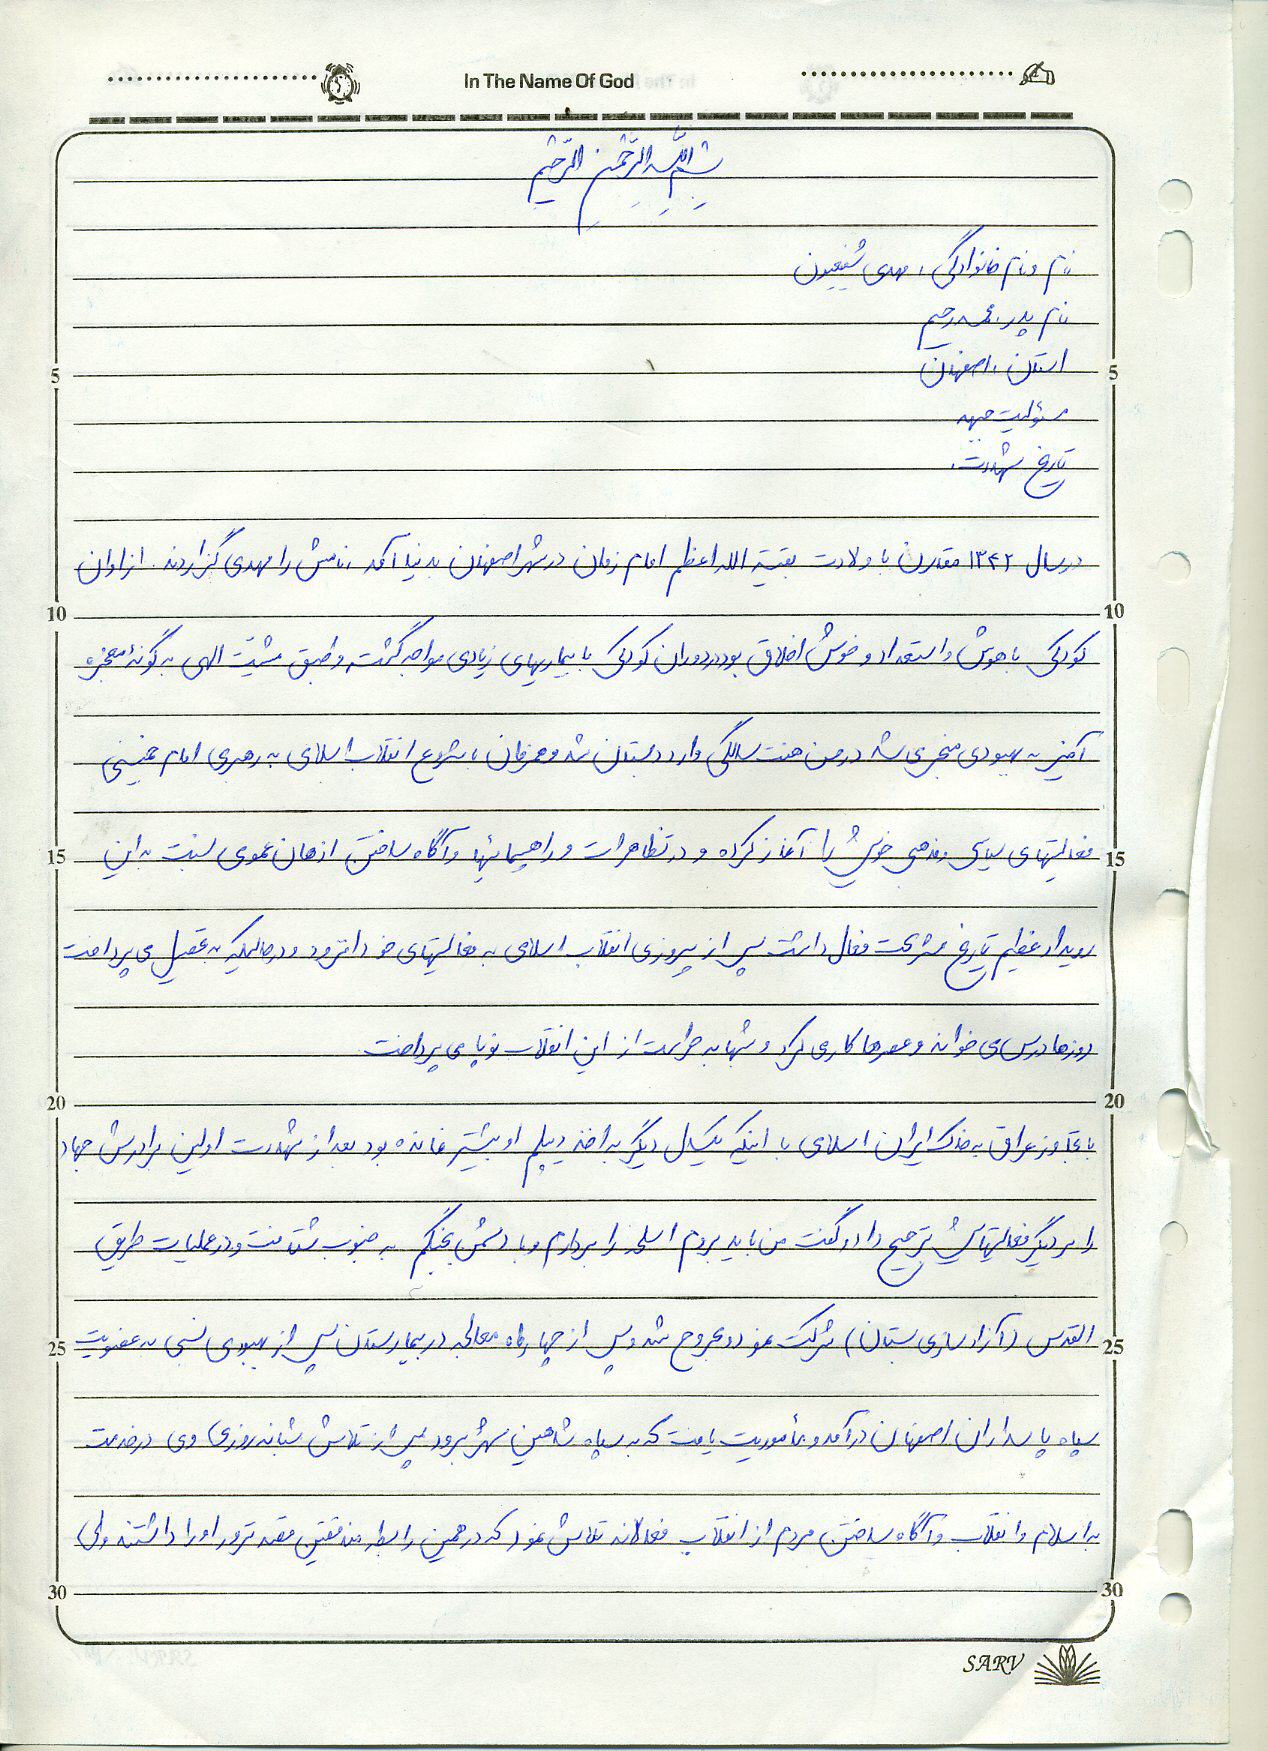 In The Name Of God
بسم الله الرحمن الرحیم
نام و نام خانوادگی : مهدی شفیعیون
نام پدر : محمد رحیم
استان : اصفهان
5 5
مسئولیت جبهه
تاریخ شهادت :
در سال ۱۳۴۲ مقارن با ولادت بقیة الله اعظم امام زمان در شهر اصفهان بدنیا آمد ، نامش را مهدی گزاردند . از اوان
10 10
کودکی با هوش و استعداد و خوش اخلاق بود در دوران کودکی با بیماریهای زیادی مواجه گشت و طبق مشیّت الهی به گونهٔ معجزه
آمیز به بهبودی منجر می شد در سن هفت سالگی وارد دبستان شد و همزمان با شروع انقلاب اسلامی به رهبری امام خمینی
15 فعالیتهای سیاسی و مذهبی خویش را آغاز کرده و در تظاهرات و راهپیمائیها و آگاه ساختن ازهان عموی نسبت به این 15
رویداد عظیم تاریخ شرکت فعال داشت پس از پیروزی انقلاب اسلامی به فعالیتهای خود افزود و در حالیکه به تحصیل می پرداخت
روزها درس می خواند و عصرها کار می کرد و شبها به حراست از این انقلاب نوپا می پرداخت
20 20
با تجاوز عراق به خاک ایران اسلامی با اینکه یکسال دیگر به اخذ دیپلم او بیشتر نمانده بود بعد از شهادت اولین برادرش جهاد
را بر دیگر فعالیتهایش ترجیح داد و گفت من باید بروم اسلحه را بردارم و با دشمن بجنگم به جنوب شتافت و در عملیات طریق
25 القدس (آزاد سازی بستان) شرکت نمود و مجروح شد و پس از چهار ماه معالجه در بیمارستان پس از بهبودی نسبی به عضویت 25
سپاه پاسداران اصفهان درآمد و مأموریت یافت که به سپاه شاهین شهر برود پس از تلاش شبانه روزی وی در خدمت
به اسلام و انقلاب و آگاه ساختن مردم از انقلاب فعالانه تلاش نمود که در همین رابطه منافقین قصد ترور او را داشتند ولی
30 30
SARV